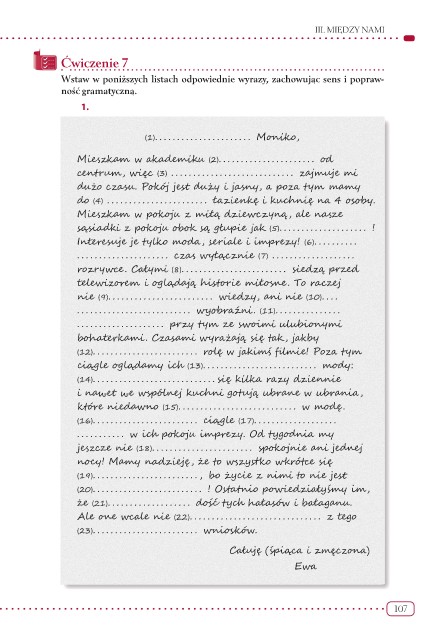 III. MIĘDZY NAMI
Ćwiczenie 7
Wstaw w poniższych listach odpowiednie wyrazy, zachowując sens i popraw-
ność gramatyczną.
1.
(1)...................... Moniko,
Mieszkam w akademiku (2)...................... od
centrum, więc (3) ............................ zajmuje mi
dużo czasu. Pokój jest duży i jasny, a poza tym mamy
do (4) ....................... łazienkę i kuchnię na 4 osoby.
Mieszkam w pokoju z miłą dziewczyną, ale nasze
sąsiadki z pokoju obok są głupie jak (5).................... !
Interesuje je tylko moda, seriale i imprezy! (6)..........
..................... czas wyłącznie (7) ...................
rozrywce. Całymi (8)........................ siedzą przed
telewizorem i oglądają historie miłosne. To raczej
nie (9)........................ wiedzy, ani nie (10)....
.......................... wyobraźni. (11)...............
.................... przy tym ze swoimi ulubionymi
bohaterkami. Czasami wyrażają się tak, jakby
(12)........................ rolę w jakimś filmie! Poza tym
ciągle oglądamy ich (13).......................... mody:
(14)............................się kilka razy dziennie
i nawet we wspólnej kuchni gotują ubrane w ubrania,
które niedawno (15)........................... w modę.
(16)........................ ciągle (17)...................
........... w ich pokoju imprezy. Od tygodnia my
jeszcze nie (18)....................... spokojnie ani jednej
nocy! Mamy nadzieję, że to wszystko wkrótce się
(19)........................, bo życie z nimi to nie jest
(20)......................... ! Ostatnio powiedziałyśmy im,
że (21)................... dość tych hałasów i bałaganu.
Ale one wcale nie (22).............................. z tego
(23)........................ wniosków.
Całuję (śpiąca i zmęczona)
Ewa
107